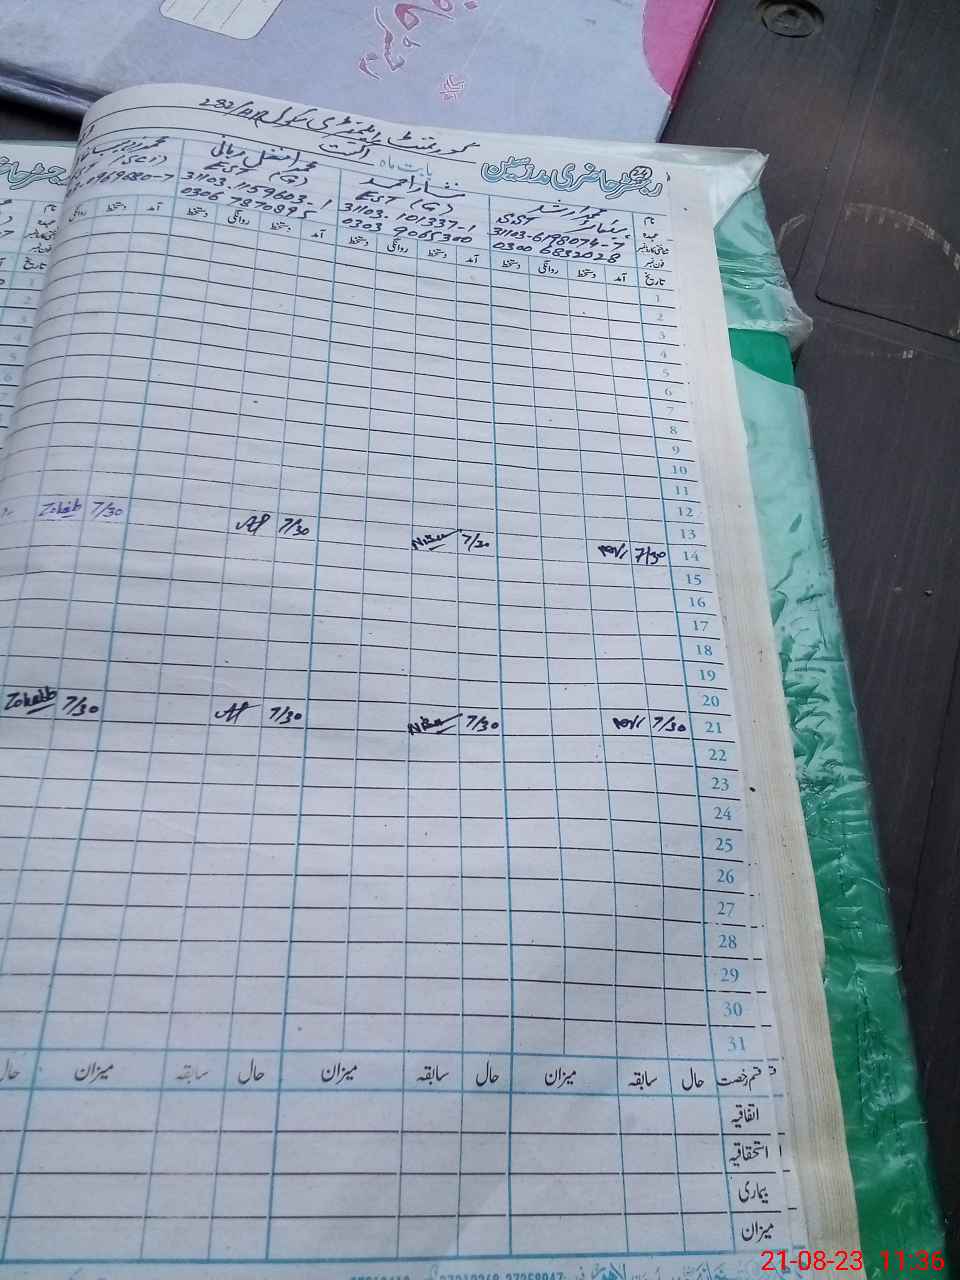 گورنمنٹ ایلیمنٹری سکول 282/HR
رجسٹر حاضری مدرسین
بابت ماہ اگست
نام
عہدہ
شناختی کارڈ نمبر
فون نمبر
SST
31103-6198074-7
0300 6832028
نثار احمد
EST (G)
31103-101337-1
0303 9065300
محمد افضل ربانی
EST (G)
31103-1159603-1
0306 7870895
(SCI)
0969880-7
تاریخ آمد دستخط روانگی دستخط آمد دستخط روانگی دستخط آمد دستخط روانگی دستخط آمد دستخط روانگی
1
2
3
4
5
6
7
8
9
10
11
12
13
14 7/30 7/30 7/30 Zohaib 7/30
15
16
17
18
19
20
21 7/30 7/30 7/30 Zohaib 7/30
22
23
24
25
26
27
28
29
30
31
قسم رخصت حال سابقہ میزان حال سابقہ میزان حال سابقہ میزان حال
اتفاقیہ
استحقاقیہ
بیماری
میزان
21-08-23 11:36